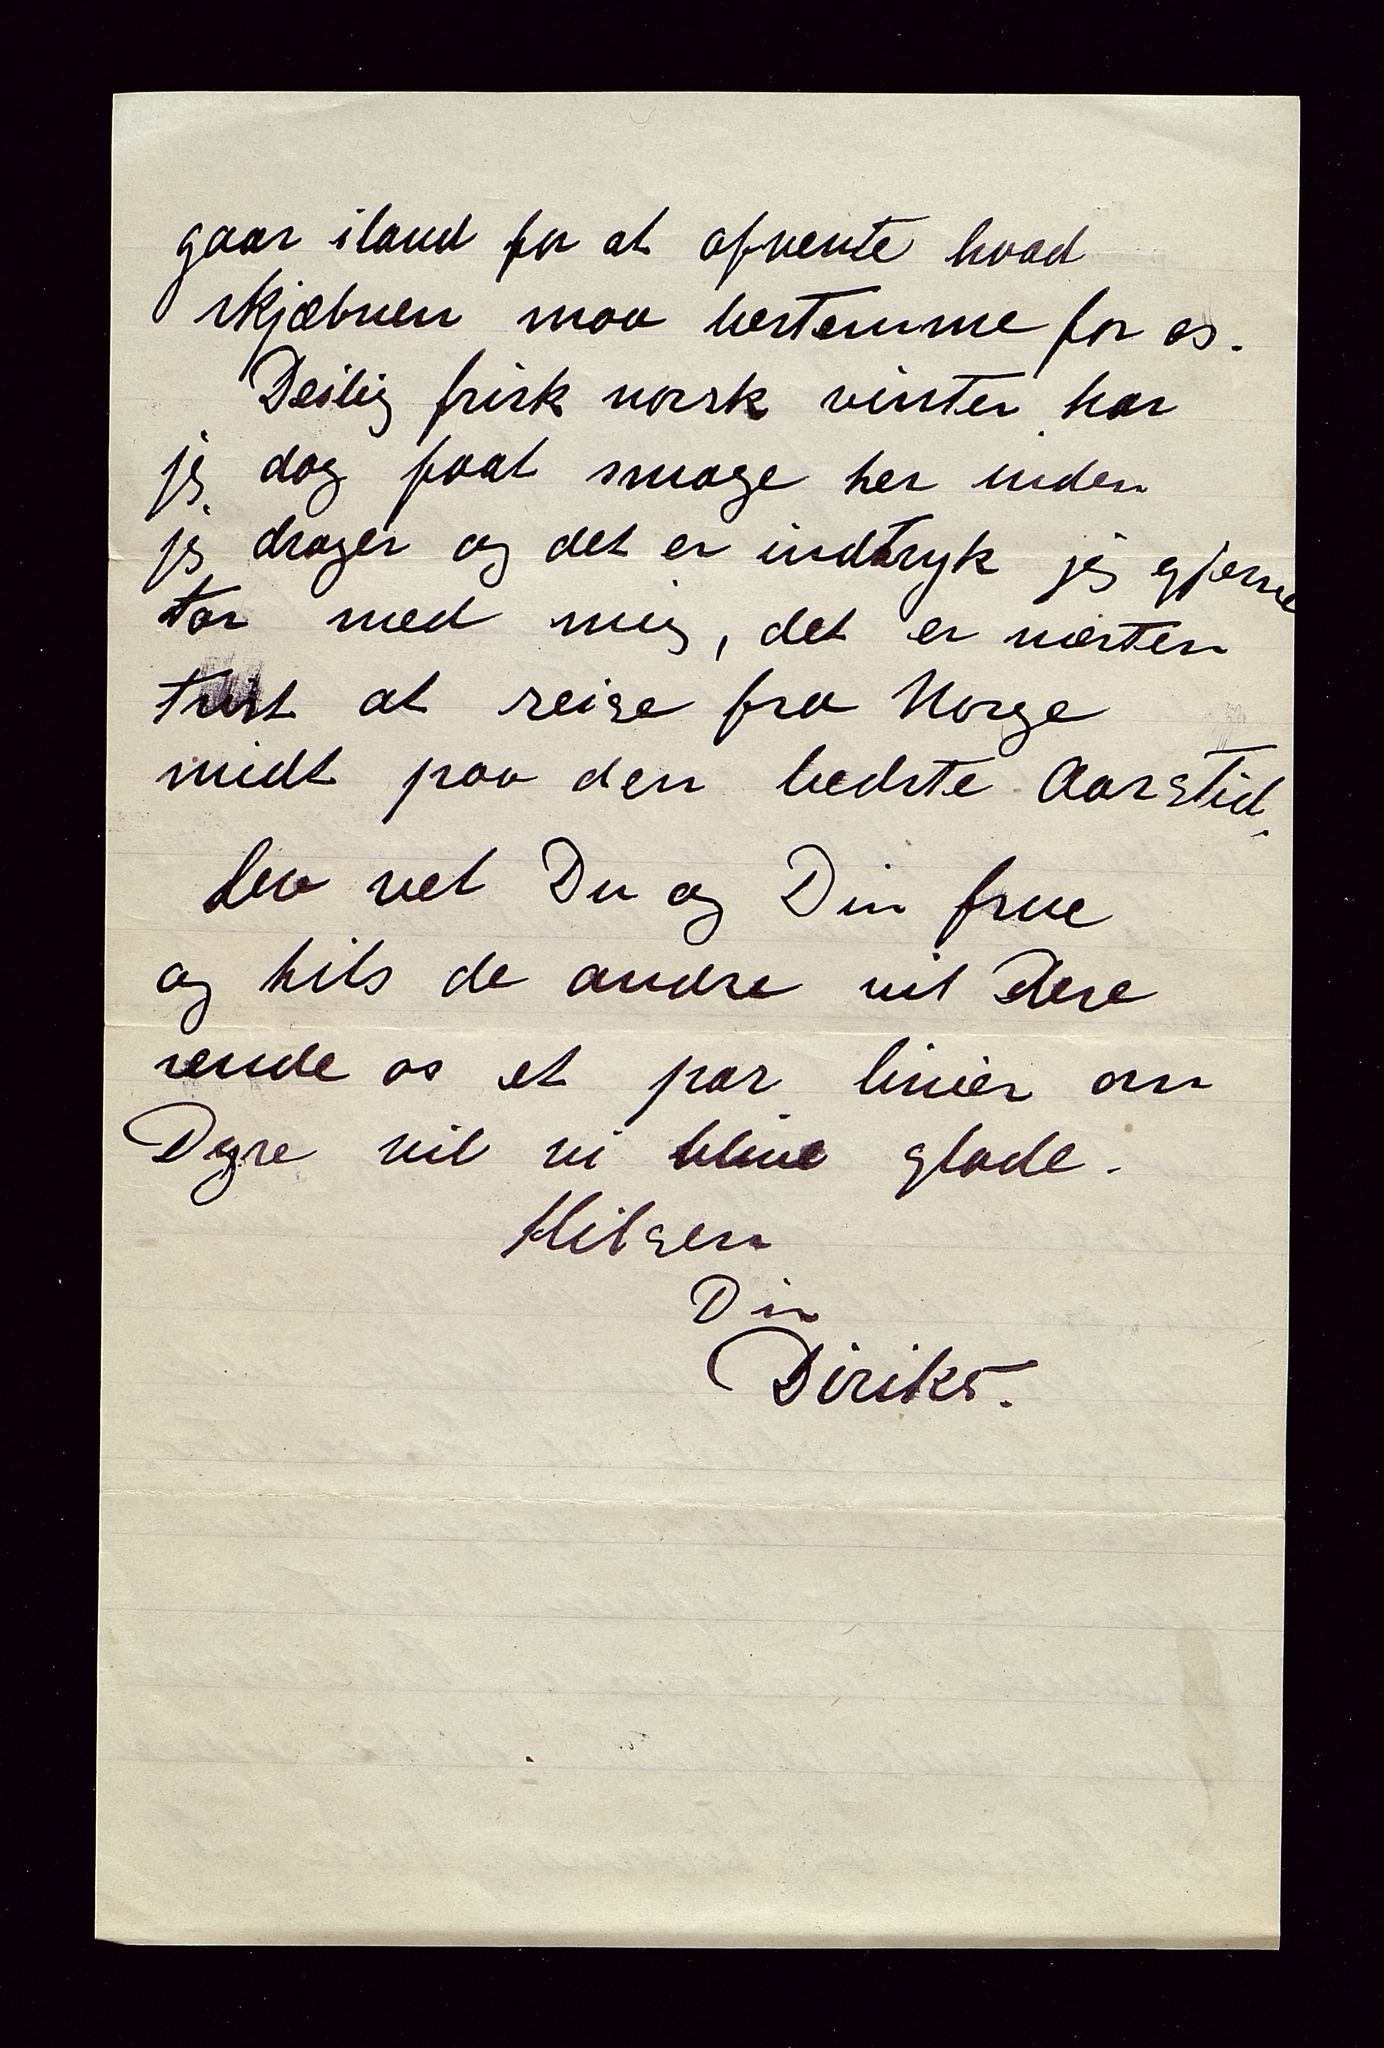 gaar iland for at afvente hvad
skjæbnen maa bestemme for os.
Deilig frisk norsk vinter har
jeg dog faat smage her inden
jeg drager og det er indtryk jeg gjerne
tar med mig, det er næsten
trist at reise fra Norge
midt paa den bedste Aarstid.
Lev vel Du og Din frue
og hils de andre vil Dere
sende os et par linier om
Dyre vil vi blive glade.
Hilsen
Din
Diriks.